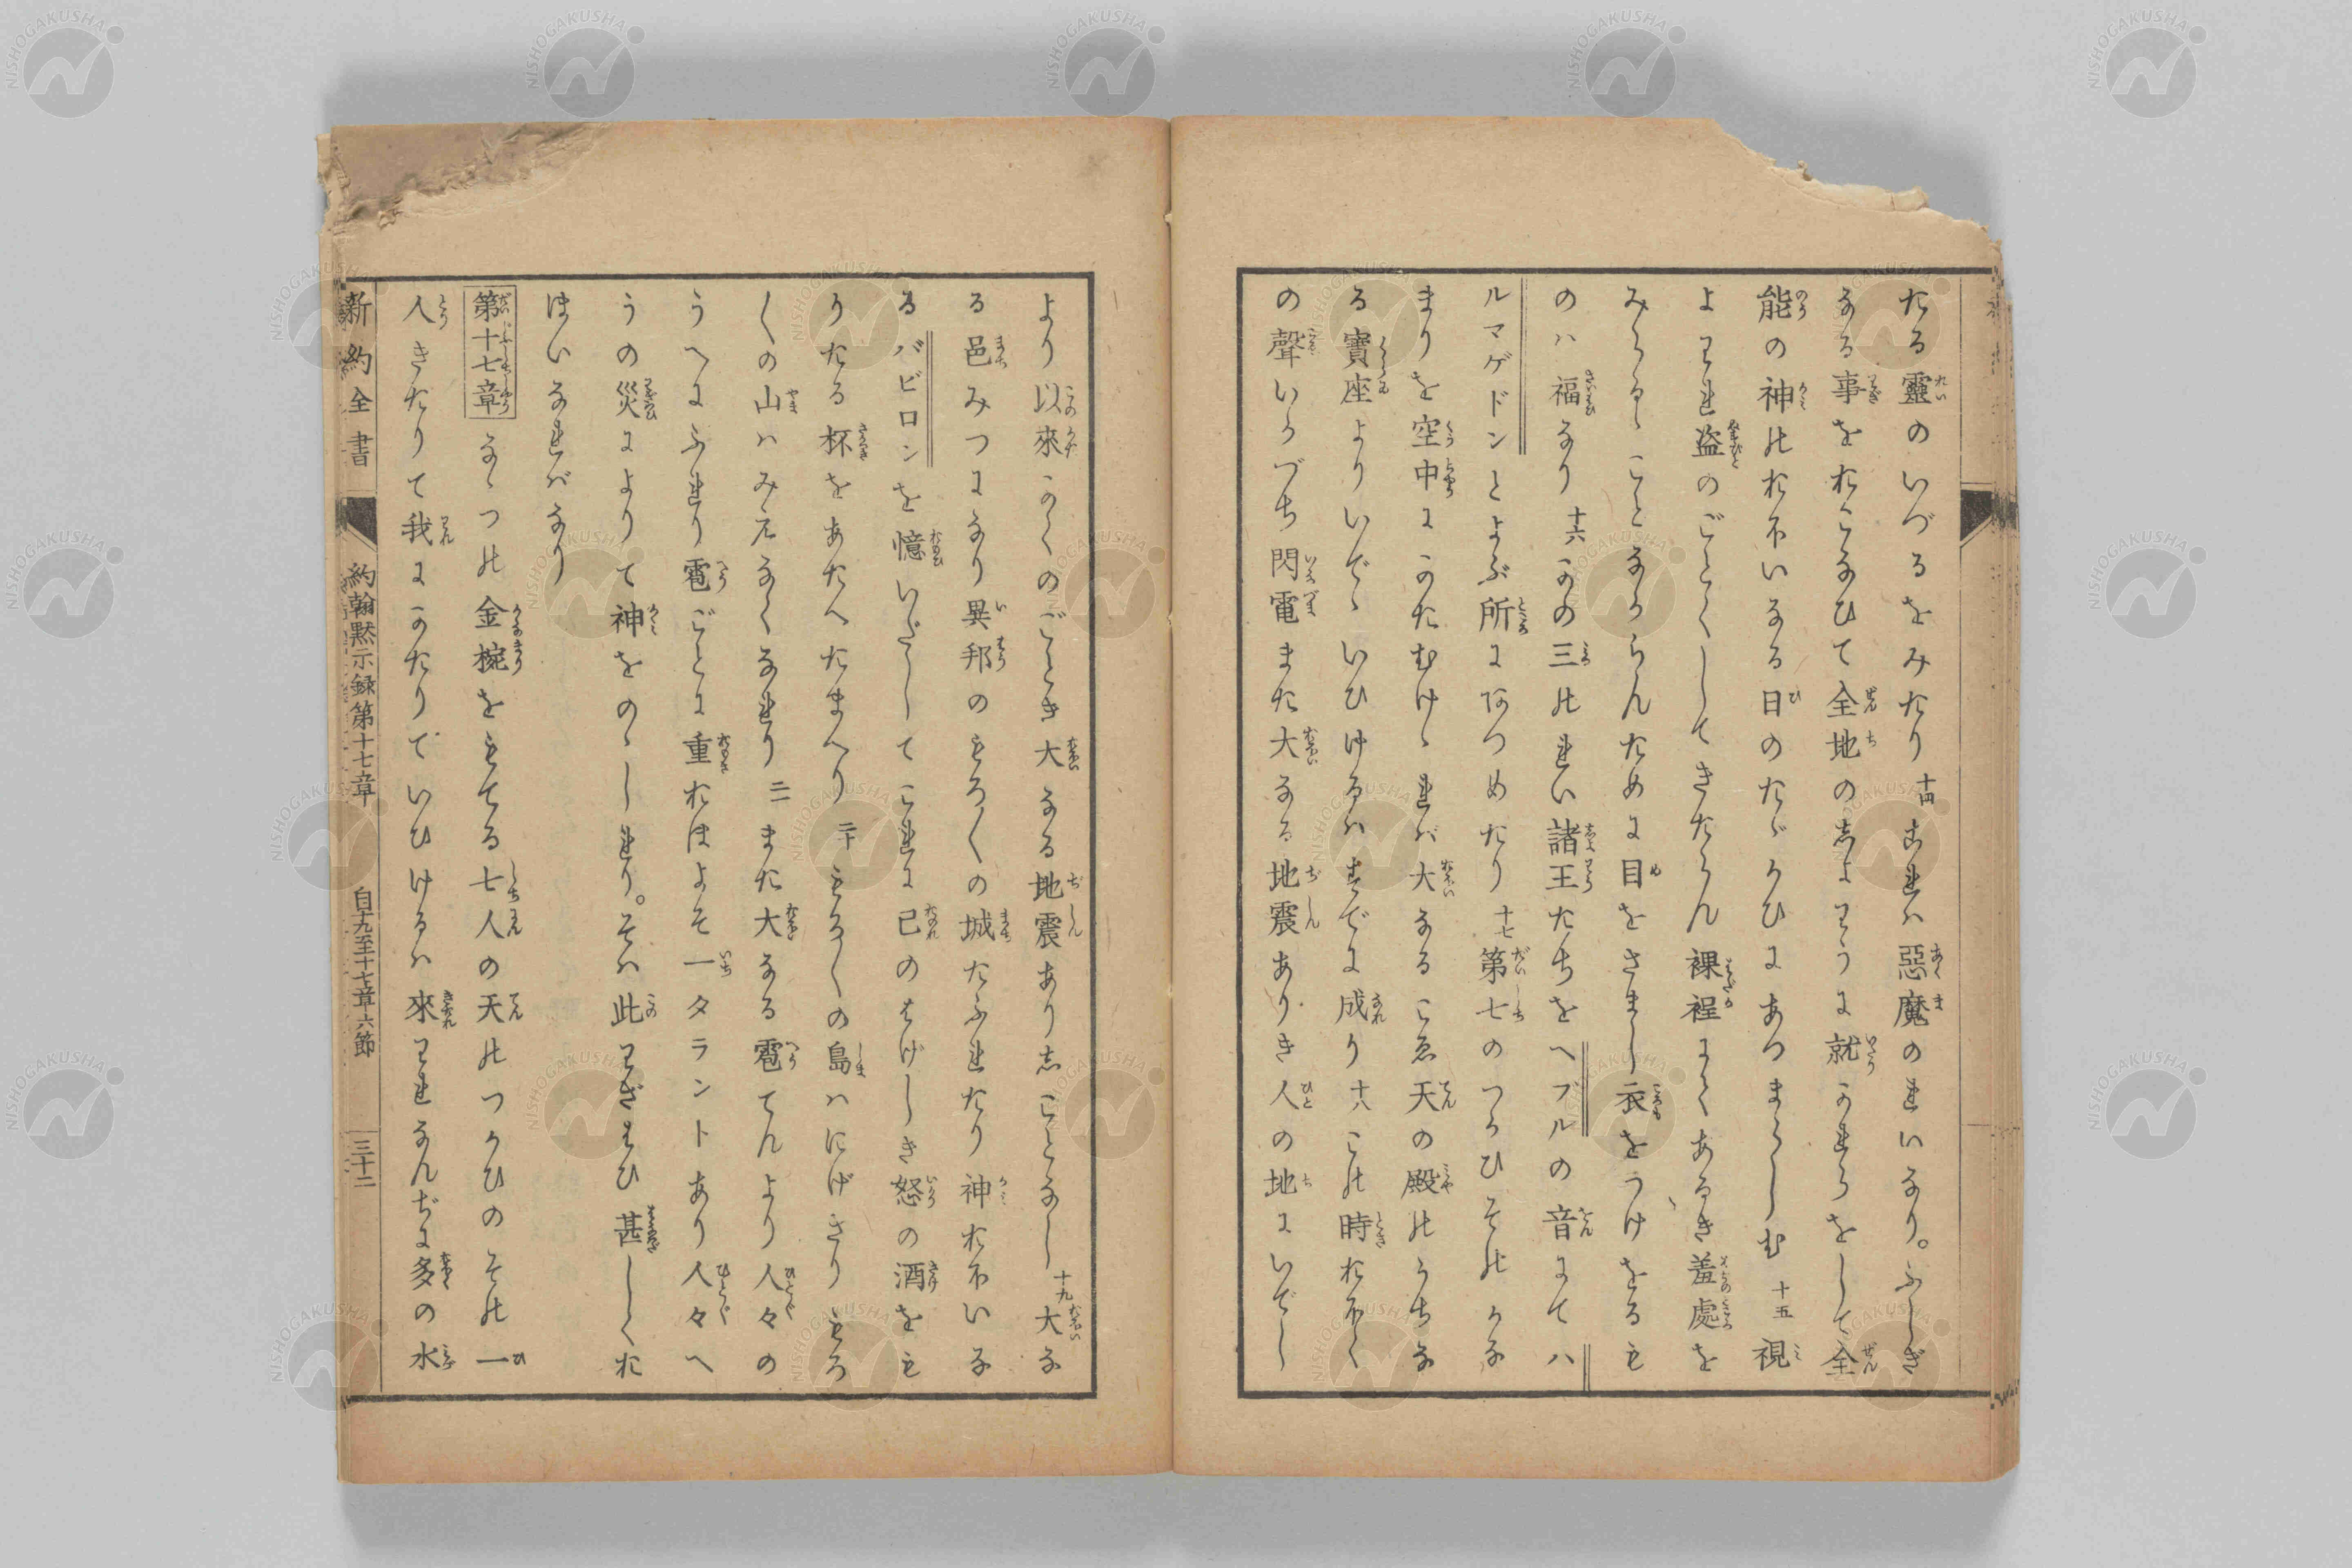 たる靈のいづるをみたり 十四 これハ惡魔のれいなり。ふしぎ
なる事をおこなひて全地のしよわうに就かれらをして全
能の神のおほいなる日のたゝかひにあつまらしむ 十五 視
よわれ盗のごとくしてきたらん裸裎にてあるき羞處を
みらるゝことなからんために目をさまし衣をうけをるも
のハ福なり 十六 かの三のれい諸王たちをヘブルの音にてハ
ルマゲドンとよぶ所にあつめたり 十七 第七のつかひそのかな
まりを空中にかたむけゝれバ大なるこゑ天の殿のうちな
る寶座よりいでゝいひけるハすでに成り 十八 この時おほく
の聲いかづち閃電また大なる地震ありき人の地にいでし
より以來かくのごとき大なる地震ありしことなし 十九 大な
る邑みつになり異邦のもろ〱の城たふれたり神おほいな
るバビロンを憶いだしてこれに己のはげしき怒の酒をも
りたる杯をあたへたまへり 二十 もろ〱の島ハにげさりもろ
〱の山ハみえなくなれり 二一 また大なる雹てんより人々の
うへにふれり雹ごとに重おほよそ一タラントあり人々へ
うの災によりて神をのゝしれり。そハ此わざはひ甚しくお
ほいなれバなり
第十七章 なゝつの金椀をもてる七人の天のつかひのその一
人きたりて我にかたりていひけるハ來われなんぢに多の水
新約全書 約翰黙示録第十七章 自十九至十七章六節 三十二
NISHOGAKUSHA